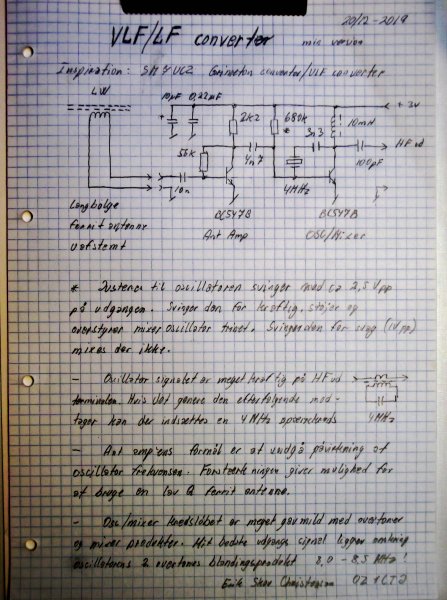 20/12-2019
VLF/LF converter min version
Inspiration: SM7UCZ Grimeton converter/VLF converter
LW
10µF 0,22µF
+ 3V
2k2
680k
*
10mH
3n3
HF ud
56k
4n7
100pF
10n
4MHz
BC547B
BC547B
Langbølge
ferrit antenne
uafstemt
Ant Amp
OSC/Mixer
* Justeres til oscillatoren svinger med ca 2,5 Vpp
på udgangen. Svinger den for kraftig, støjer og
overstyrer mixer oscillator trinet. Svinger den for svag (1Vpp)
mixes der ikke.
- Oscillator signalet er meget kraftig på HF ud
terminalen. Hvis det genere den efterfølgende mod-
tager kan der indsættes en 4 MHz spærrekreds
4MHz
- Ant ampens formål er at undgå påvirkning af
oscillator frekvensen. Forstærkningen giver mulighed for
at bruge en lav Q ferrit antenne.
- Osc/mixer kredsløbet er meget gavmild med overtoner
og mixer produkter. Mit bedste udgangs signal ligger omkring
oscillatorens 2. overtones blandingsprodukt 8,0 - 8,5 MHz!
Erik Skov Christensen OZ1CTZ